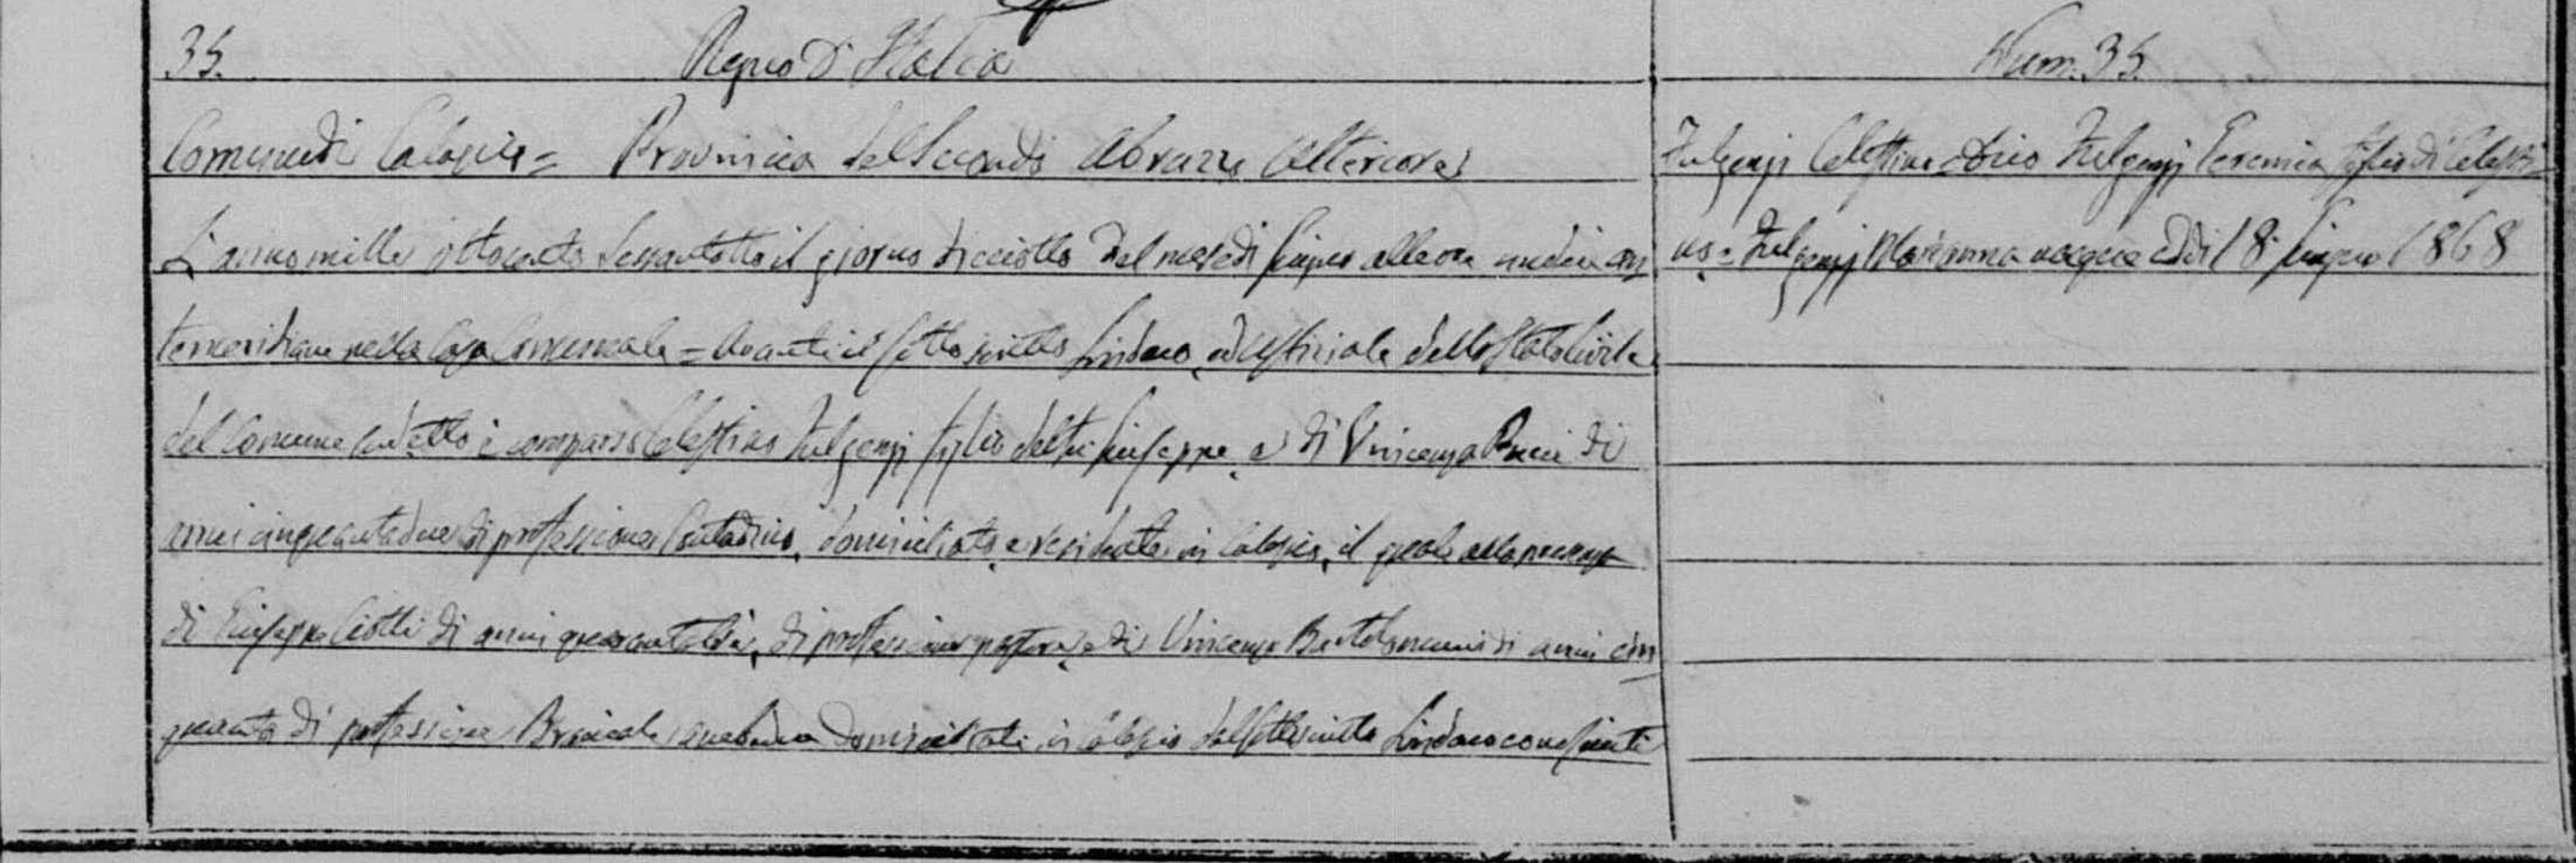 35. Regno D'Italia
Comune di Calascio = Provincia del Secondo Abruzzo Ulteriore
L'anno mille ottocento sessantotto il giorno diciotto del mese di Giugno alle ore undici an
temeridiane nella Casa Comunale = Avanti il sottoscritto Sindaco, ed Uffiziale dello Stato Civile
del Comune sudetto è comparso Celestino Fulgenzj figlio del fu Giuseppe e di Vincenza Pucci di
anni cinquantadue di professione Contadino, domiciliato, e residente in Calascio, il quale alla presenza
di Giuseppe Ciotti di anni di professione pastore, e di Vincenzo Bartolomucci di anni cin
quanta di professione Bracciale ambidue domiciliati in Calascio dal sottoscritto Sindaco conosciuti
Num. 35.
Fulgenzj Celestino Fulgenzj Geremia figlio di Celesti=
no = Fulgenzj Marianna nacque addì 18 Giugno 1868